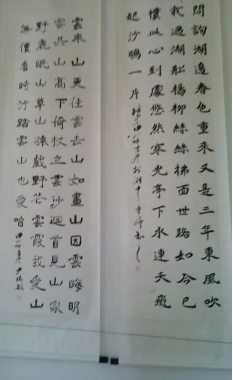 問訊湖邊春色重來又是三年東風吹
我過湖船楊柳絲絲拂面世路如今已
慣此心到處悠然寒光亭下水連天飛
起沙鷗一片
雲來山更佳雲去山如畫山因雲晦明
雲共山高下倚杖立雲沙迴首見山家
野鹿眠山草山猿戲野花雲霞我愛山
無價看時行踏雲山也愛咱